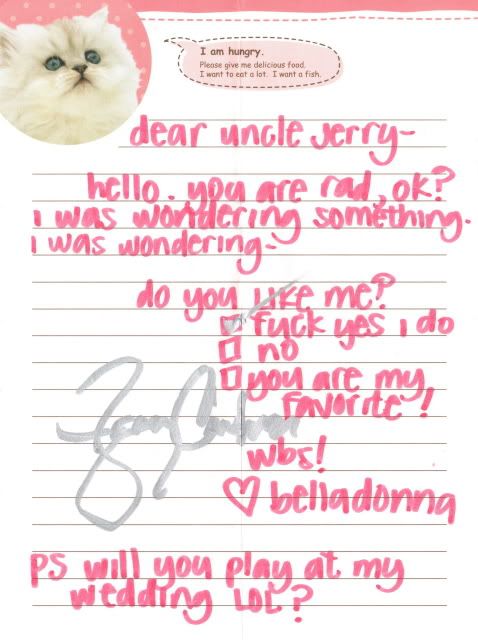 I am hungry.
Please give me delicious food.
I want to eat a lot. I want a fish.
dear uncle Jerry-
hello. you are rad, ok?
i was wondering something.
i was wondering-
do you like me?
fuck yes i do
no
you are my
favorite!
wbs!
♡ belladonna
PS will you play at my
wedding LOL?